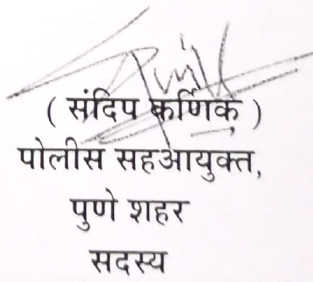 ( संदिप कर्णिक )
पोलीस सहआयुक्त,
पुणे शहर
सदस्य